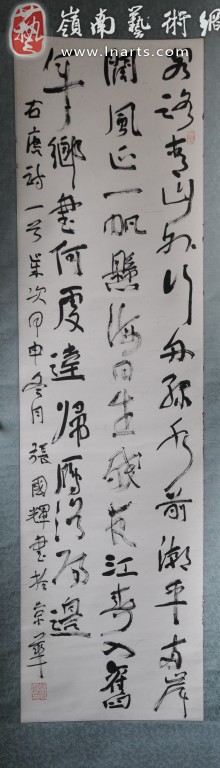 嶺南藝術網
www.lnarts.com
客路青山外行舟綠水前潮平兩岸
闊風正一帆懸海日生殘夜江春入舊
年鄉書何處達歸雁洛陽邊
右唐詩一首歲次甲申冬月張國輝書於京華